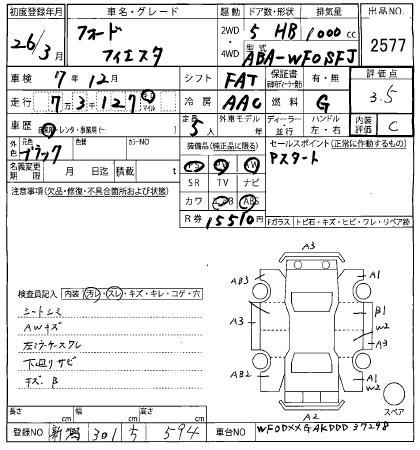 初度登録年月 車名・グレード 駆動 ドア数・形状 排気量 出品NO.
26/3月 フォード フィエスタ 2WD・4WD 5 HB 1000cc 2577
型式 ABA-WF0SFJ
車検 7年12月 シフト FAT 保証書 有・無 評価点
走行 7万3127 キロ マイル 冷房 AAC 燃料 G 3.5
車歴 自家用・レンタ・事業用(-) 定員 5人 外車モデル年 ディーラー・並行 ハンドル 左・右 内装評価 C
外色 元色 ブラック 色替 カラーNO 装備品(純正品に限る) セールスポイント(正常に作動するもの)
名義変更期限 月 日迄 積載 t PS PW AW Pスタート
注意事項(欠品・修復・不具合箇所および状態) SR TV ナビ
カワ エアB ABS
R券 15510円 Fガラス トビ石・キズ・ヒビ・ワレ・リペア跡
A3
AB3 A1
検査員記入 内装 汚レ・スレ・キズ・キレ・コゲ・穴
シートシミ A3 B1
AWキズ W2
左ミラーケースワレ A3
下回りサビ AB2 A1
キズ、B W2
A2 スペア
長さ cm 幅 cm 高さ cm
登録NO 新潟 301 ち 594 車台NO WF0DXXGAKDDD37298